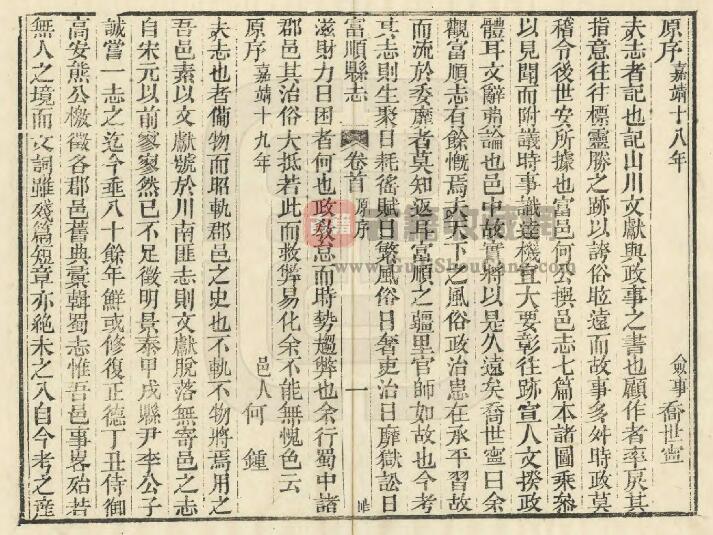 原序 嘉靖十八年 僉事喬世寧
夫志者記也記山川文獻與政事之書也顧作者率展其
指意往往標靈勝之跡以誇俗眩遠而故事多舛時政莫
稽令後世安所據也富邑何公撰邑志七篇本諸圖乘叅
以見聞而附議時事識達機宜大要彰往跡宣人文揆政
體耳文辭弗論也邑中故實將以是久遠矣喬世寧曰余
觀富順志有餘慨焉夫天下之風俗政治患在承平習故
而流於委靡者莫知返耳富順之疆里官師如故也今考
其志則生聚日耗徭賦日繁風俗日奢吏治日靡獄訟日
富順縣志 卷首 原序 一
滋財力日困者何也政敎怠而時勢趨弊也余行蜀中諸
郡邑其治俗大抵若此而救弊易化余不能無愧色云
原序 嘉靖十九年 邑人何鍾
夫志也者備物而昭軌郡邑之史也不軌不物將焉用之
吾邑素以文獻號於川南匪志則文獻脫落無寄邑之志
自宋元以前寥寥然已不足徵明景泰甲戌縣尹李公子
誠嘗一志之迄今垂八十餘年鮮或修復正德丁丑侍御
高安熊公檄徵各郡邑舊典彙輯蜀志惟吾邑事畧殆若
無人之境而文詞雖殘篇短章亦絶未之入自今考之產
古籍收藏網
www.GuJiShouCang.com